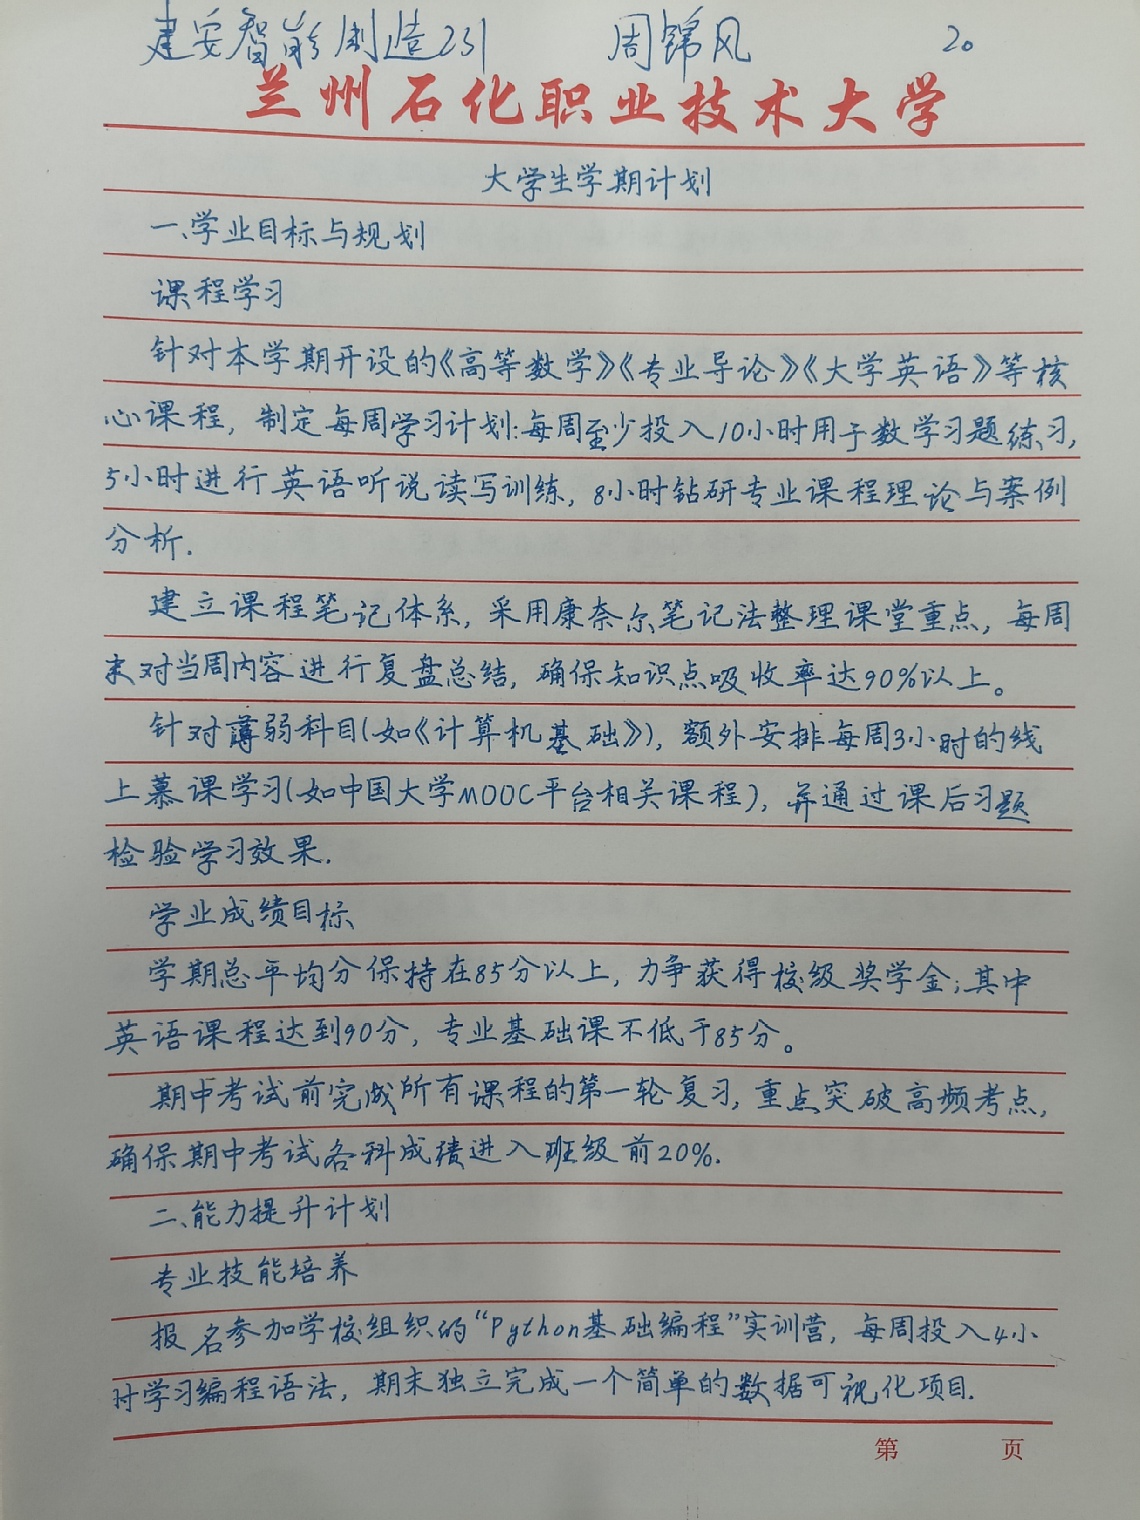 建安智能制造231 周锦风 20
兰州石化职业技术大学
大学生学期计划
一、学业目标与规划
课程学习
针对本学期开设的《高等数学》《专业导论》《大学英语》等核
心课程，制定每周学习计划:每周至少投入10小时用于数学习题练习,
5小时进行英语听说读写训练，8小时钻研专业课程理论与案例
分析.
建立课程笔记体系，采用康奈尔笔记法整理课堂重点，每周
末对当周内容进行复盘总结，确保知识点吸收率达90%以上。
针对薄弱科目(如《计算机基础》)，额外安排每周3小时的线
上慕课学习(如中国大学MOOC平台相关课程)，并通过课后习题
检验学习效果.
学业成绩目标
学期总平均分保持在85分以上，力争获得校级奖学金;其中
英语课程达到90分，专业基础课不低于85分。
期中考试前完成所有课程的第一轮复习,重点突破高频考点,
确保期中考试各科成绩进入班级前20%.
二、能力提升计划
专业技能培养
报名参加学校组织的“Python基础编程”实训营，每周投入4小
时学习编程语法，期末独立完成一个简单的数据可视化项目.
第 页